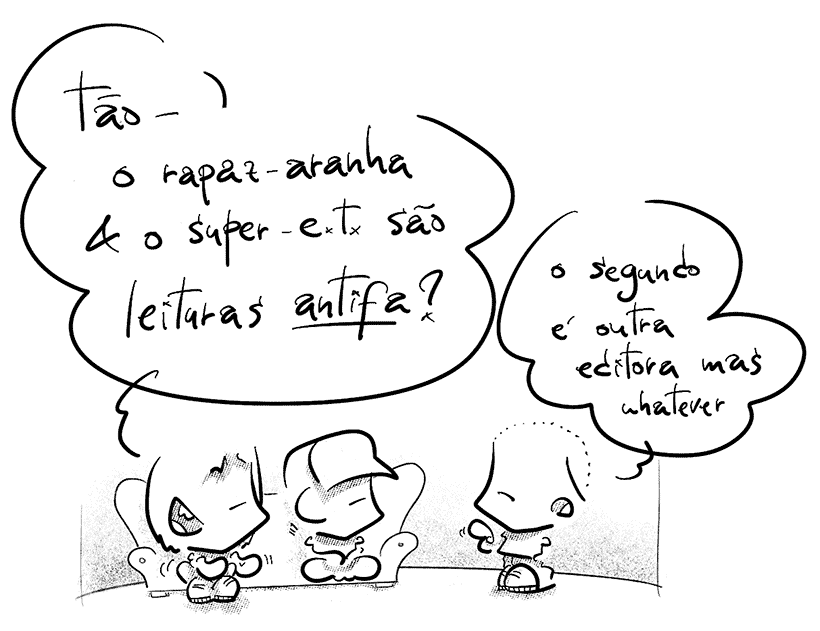 tão -
o rapaz-aranha
& o super-e.t. são
leituras antifa?
o segundo
é outra
editora mas
whatever